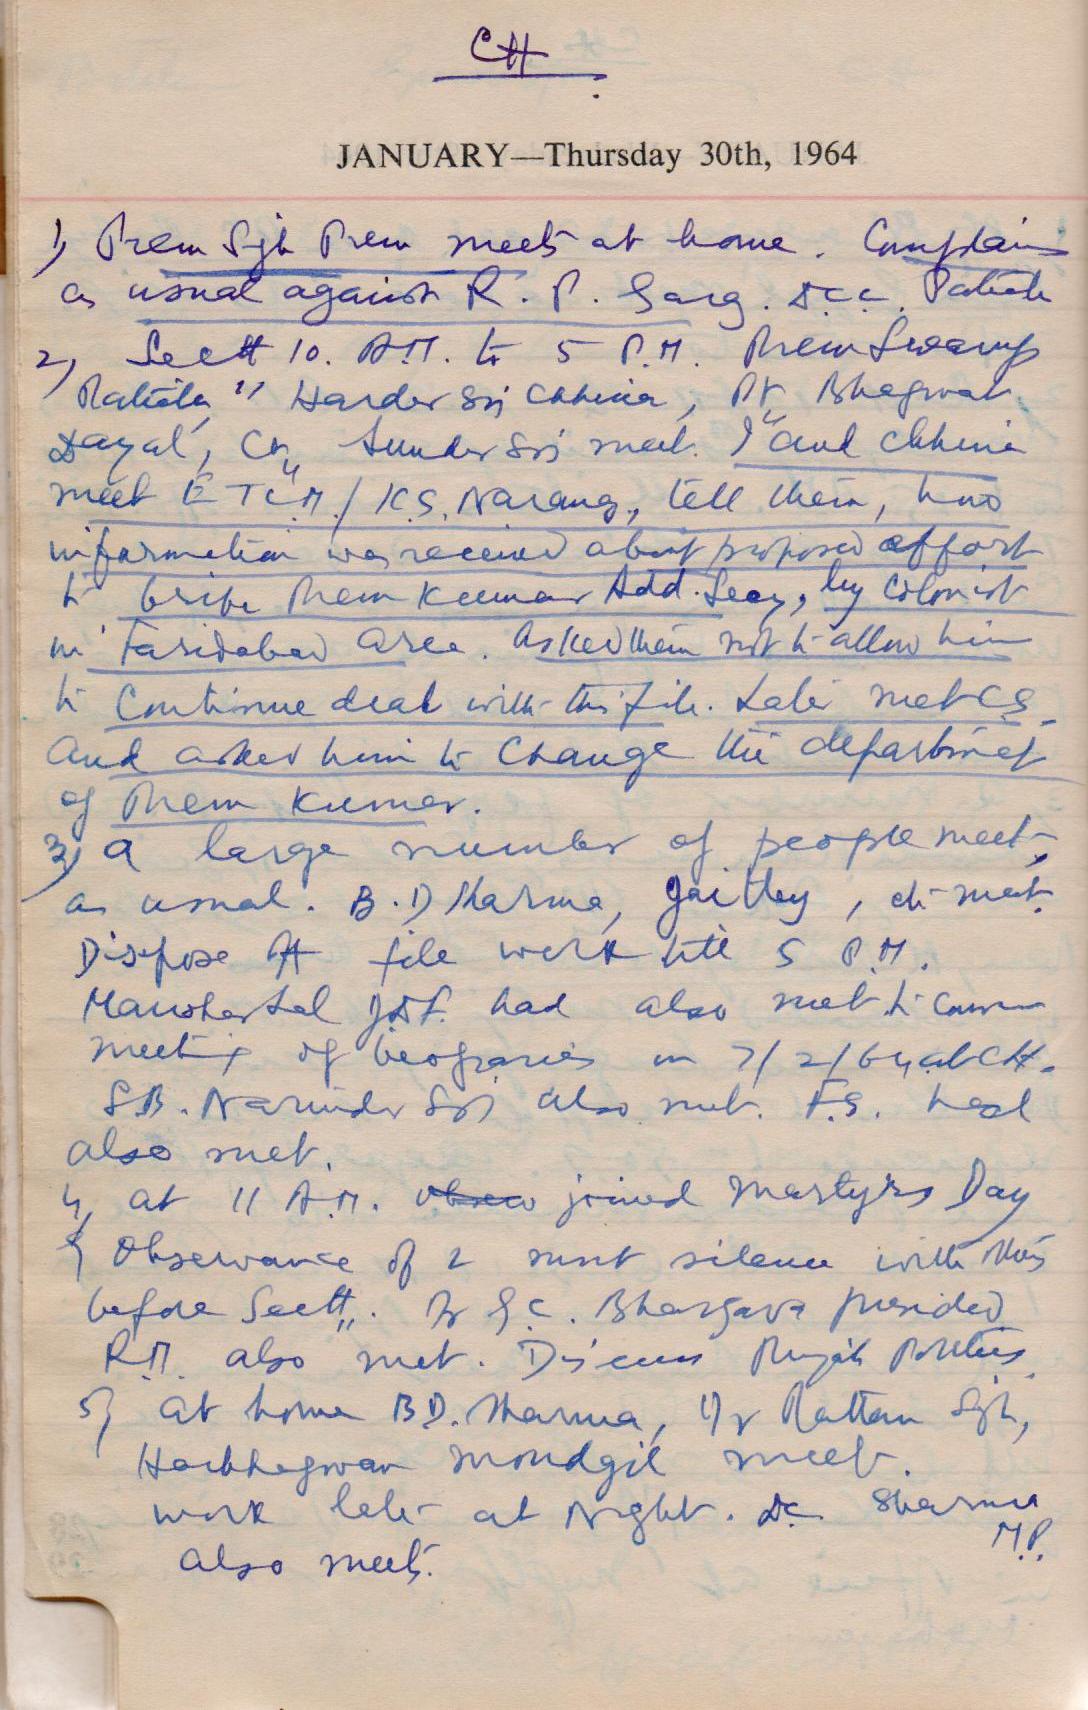 CH
JANUARY—Thursday 30th, 1964
1) Prem Sgh Prem meets at home. Complains
as usual against R. P. Garg. D.C.C. Patiala
2) Sectt 10. A.M. to 5 P.M. Prem Swarup
Patiala, Harder Sgh Chhina, Pt Bhagwat
Dayal, Ch Sunder Sgh meet. I and Chhina
meet ETCM / K.S. Narang, tell them, how
information was received about proposed effort
to bribe Prem Kumar Add. Secy, by Colonist
in Faridabad area. Asked them not to allow him
to Continue deal with this file. Later met CS.
and asked him to Change the department
of Prem Kumar.
3) A large number of people meet,
as usual. B.D Sharma, Jaitley, meet.
Dispose off file work till 5 P.M.
Manohar Lal had also met to
meeting of in 7/2/64 at CH.
S.B. Narinder Sgh also met. F.S. had
also met.
4) at 11 A.M. joined Martyrs Day
Observance of 2 mnt silence with
before Sectt. Dr G.C. Bhargava presided
R.M. also met. Discuss Punjab Politics.
5) at home B.D. Sharma, Rattan Sgh,
Harbhagwan Moudgil meet.
work late at Night. D.C. Sharma
M.P.
also meets.